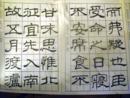 而弗疑也臣
受命之日寢
不安席食不
甘味思惟北
征宜先入南
故五月渡瀘